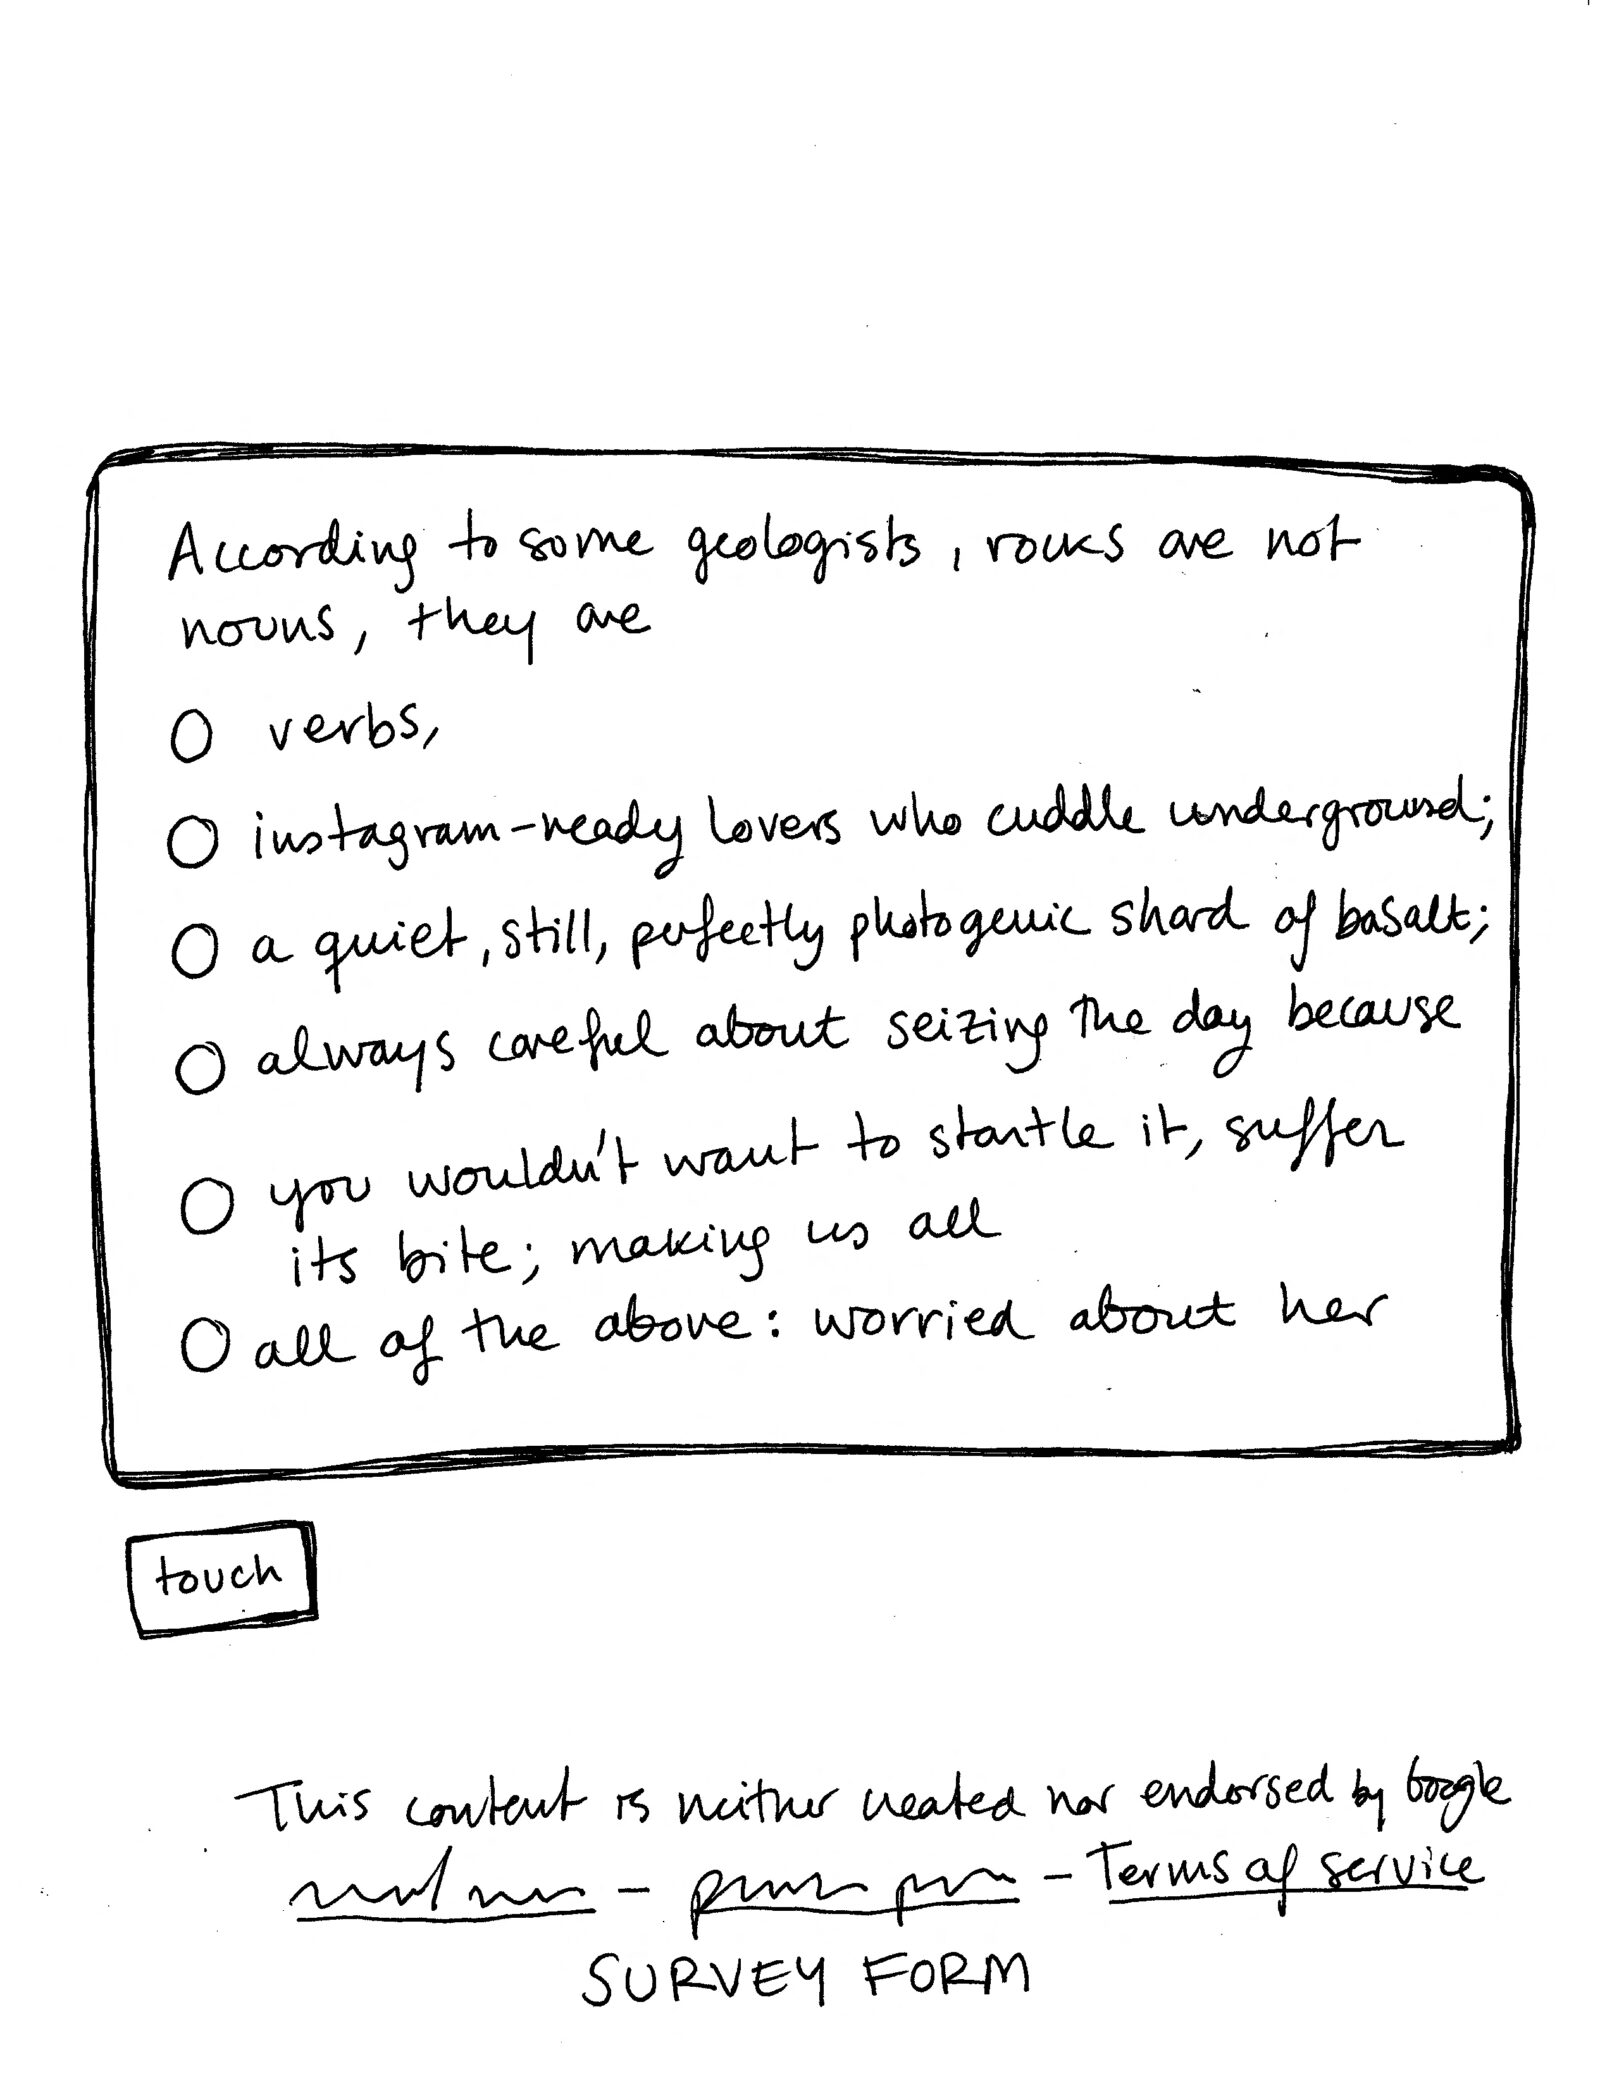 According to some geologists, rocks are not
nouns, they are
verbs,
instagram-ready lovers who cuddle underground;
a quiet, still, perfectly photogenic shard of basalt;
always careful about seizing the day because
you wouldn't want to startle it, suffer
its bite; making us all
all of the above: worried about her
touch
This content is neither created nor endorsed by Google
- - Terms of service
SURVEY FORM